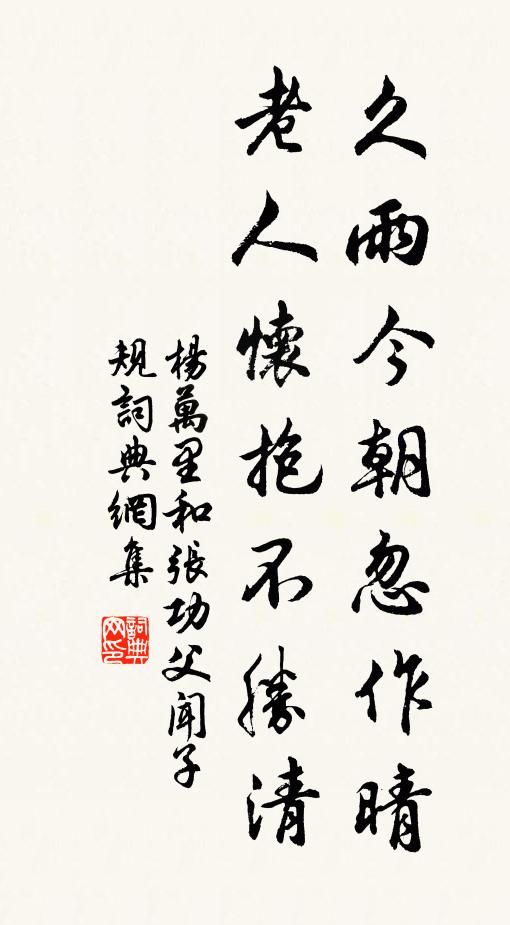 久雨今朝忽作晴
老人懷抱不勝清
楊萬里和張功父聞子
規詞典網集
詞典網印